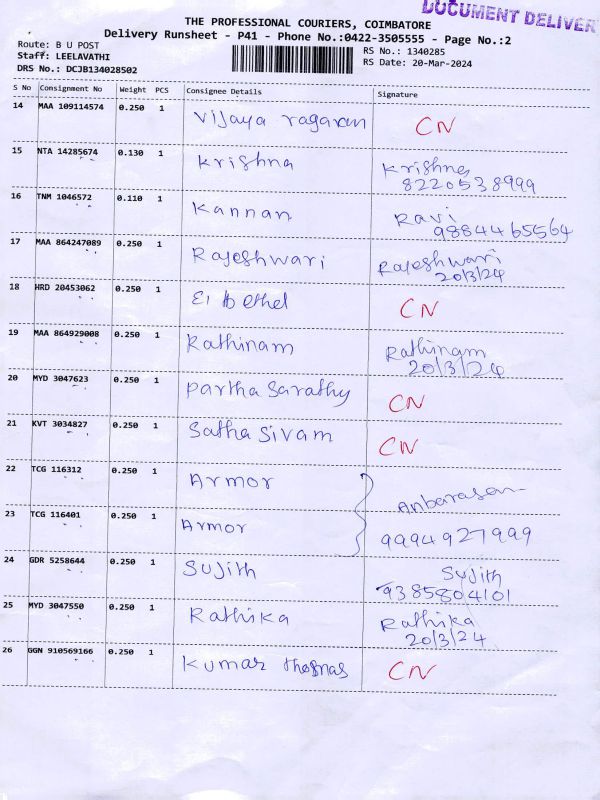 DOCUMENT DELIVER
THE PROFESSIONAL COURIERS, COIMBATORE
Delivery Runsheet - P41 - Phone No.:0422-3505555 - Page No.:2
Route: B U POST
Staff: LEELAVATHI
DRS No.: DCJB134028502
RS No.: 1340285
RS Date: 20-Mar-2024
S No Consignment No Weight PCS Consignee Details Signature
14 MAA 109114574 0.250 1 Vijaya ragavan CN
15 NTA 14285674 0.130 1 Krishna Krishna
8220538999
16 TNM 1046572 0.110 1 Kannan Ravi
9884465564
17 MAA 864247089 0.250 1 Rajeshwari Rajeshwari
20/3/24
18 HRD 20453062 0.250 1 El bethel CN
19 MAA 864929008 0.250 1 Rathinam Rathinam
20/3/24
20 MYD 3047623 0.250 1 Partha Sarathy CN
21 KVT 3034827 0.250 1 Satha Sivam CN
22 TCG 116312 0.250 1 Armor Anbarasan
23 TCG 116401 0.250 1 Armor 9994927999
24 GDR 5258644 0.250 1 Sujith Sujith
9385804101
25 MYD 3047550 0.250 1 Rathika Rathika
20/3/24
26 GGN 910569166 0.250 1 Kumar thomas CN